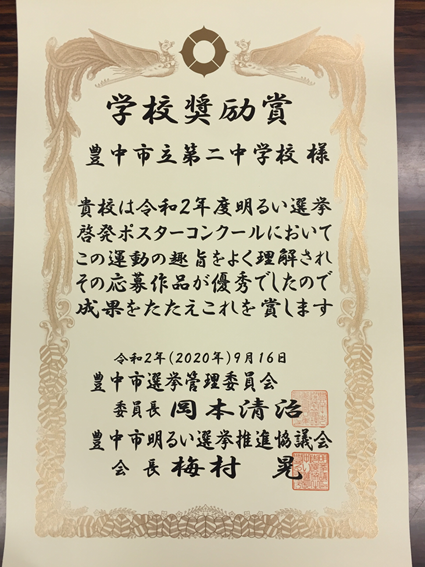 学校奨励賞
豊中市立第二中学校 様
貴校は令和2年度明るい選挙
啓発ポスターコンクールにおいて
この運動の趣旨をよく理解され
その応募作品が優秀でしたので
成果をたたえこれを賞します
令和2年(2020年)9月16日
豊中市選挙管理委員会
委員長 岡本清治
豊中市明るい選挙推進協議会
会長 梅村 晃